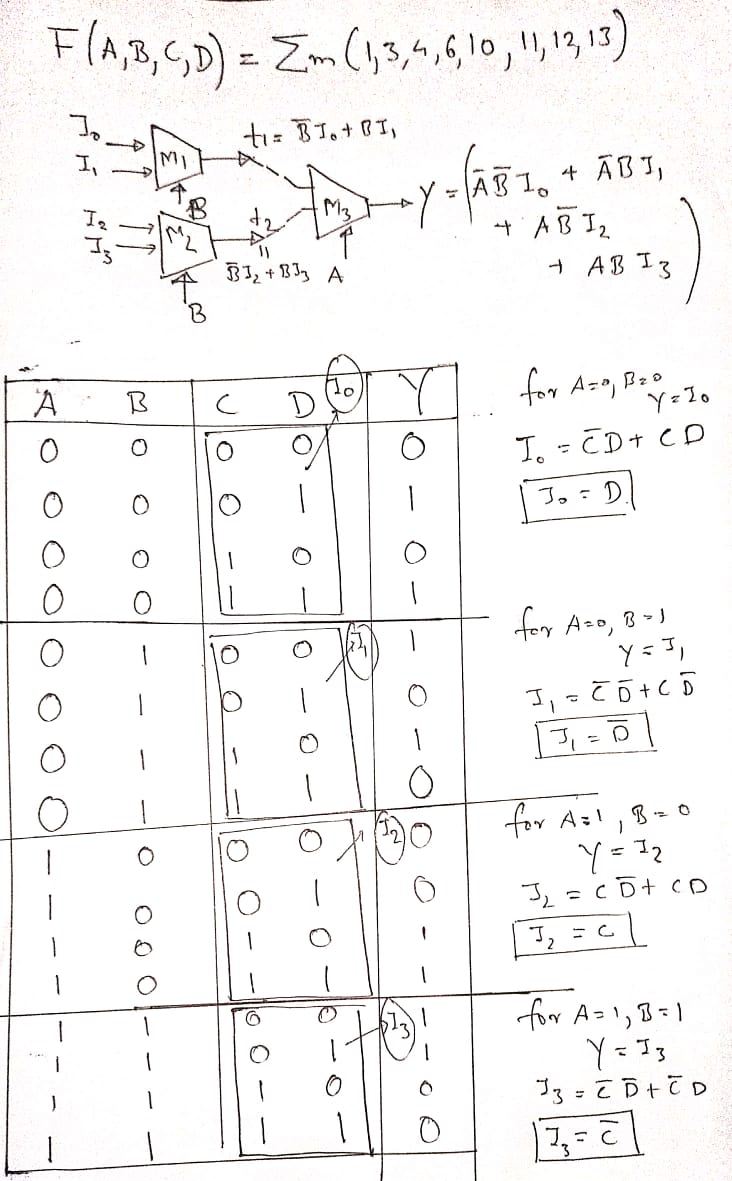 F(A,B,C,D) = Σm (1,3,4,6,10,11,12,13)
I₀
I₁
M₁
B
t₁ = B̄I₀ + BI₁
I₂
I₃
M₂
B
t₂
=
B̄I₂ + BI₃
M₃
A
Y = (ĀB̄I₀ + ĀBI₁
+ AB̄I₂
+ ABI₃)
A B C D I₀ Y
0 0 0 0 0
0 0 0 1 1
0 0 1 0 0
0 0 1 1 1
0 1 0 0 I₁ 1
0 1 0 1 0
0 1 1 0 1
0 1 1 1 0
1 0 0 0 I₂ 0
1 0 0 1 0
1 0 1 0 1
1 0 1 1 1
1 1 0 0 I₃ 1
1 1 0 1 1
1 1 1 0 0
1 1 1 1 0
for A=0, B=0
Y=I₀
I₀ = C̄D + CD
I₀ = D
for A=0, B=1
Y=I₁
I₁ = C̄D̄ + CD̄
I₁ = D̄
for A=1, B=0
Y=I₂
I₂ = CD̄ + CD
I₂ = C
for A=1, B=1
Y=I₃
I₃ = C̄D̄ + C̄D
I₃ = C̄